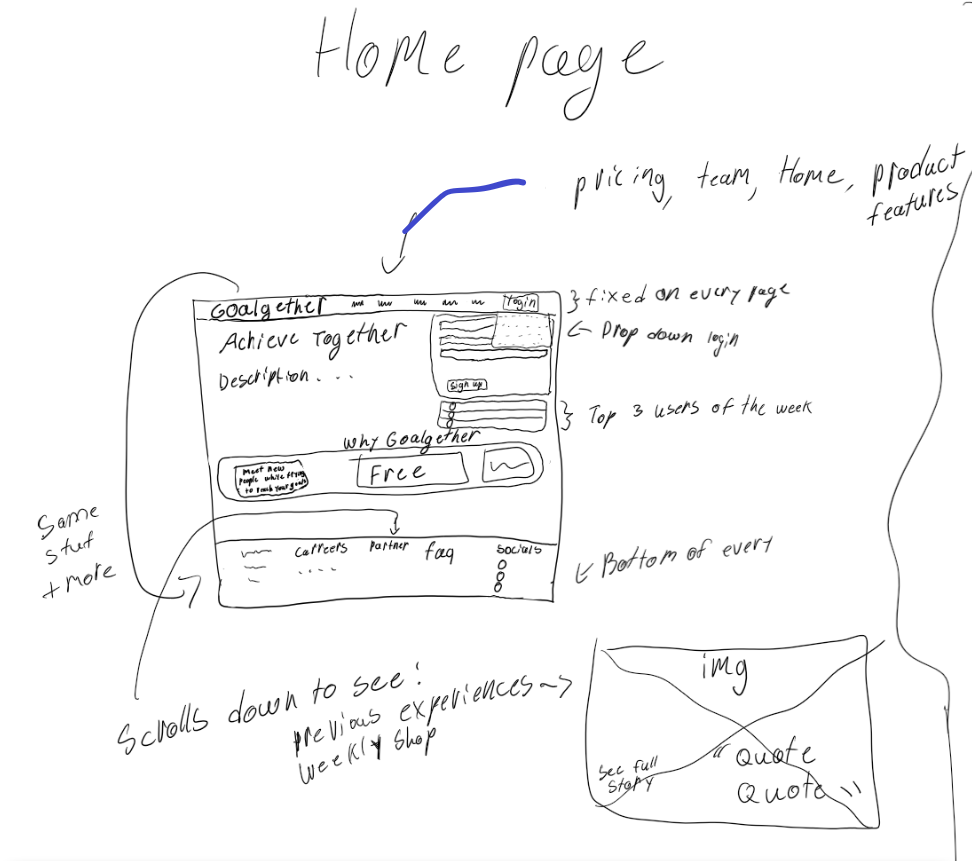 Home page
pricing, team, Home, product
features
Goalgether
login
} fixed on every page
Achieve Together
← Drop down login
Description. . . .
sign up
} Top 3 users of the week
Why Goalgether
Meet New
people while trying
to reach your goals
Free
Same
stuf
+ more
carreers
Partner
faq
socials
← Bottom of every
Scrolls down to see:
previous experiences →
weekly shop
img
see full
story
"Quote
Quote"